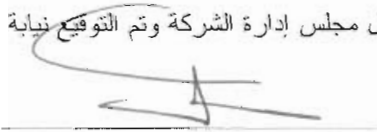 مجلس إدارة الشركة وتم التوقيع نيابة